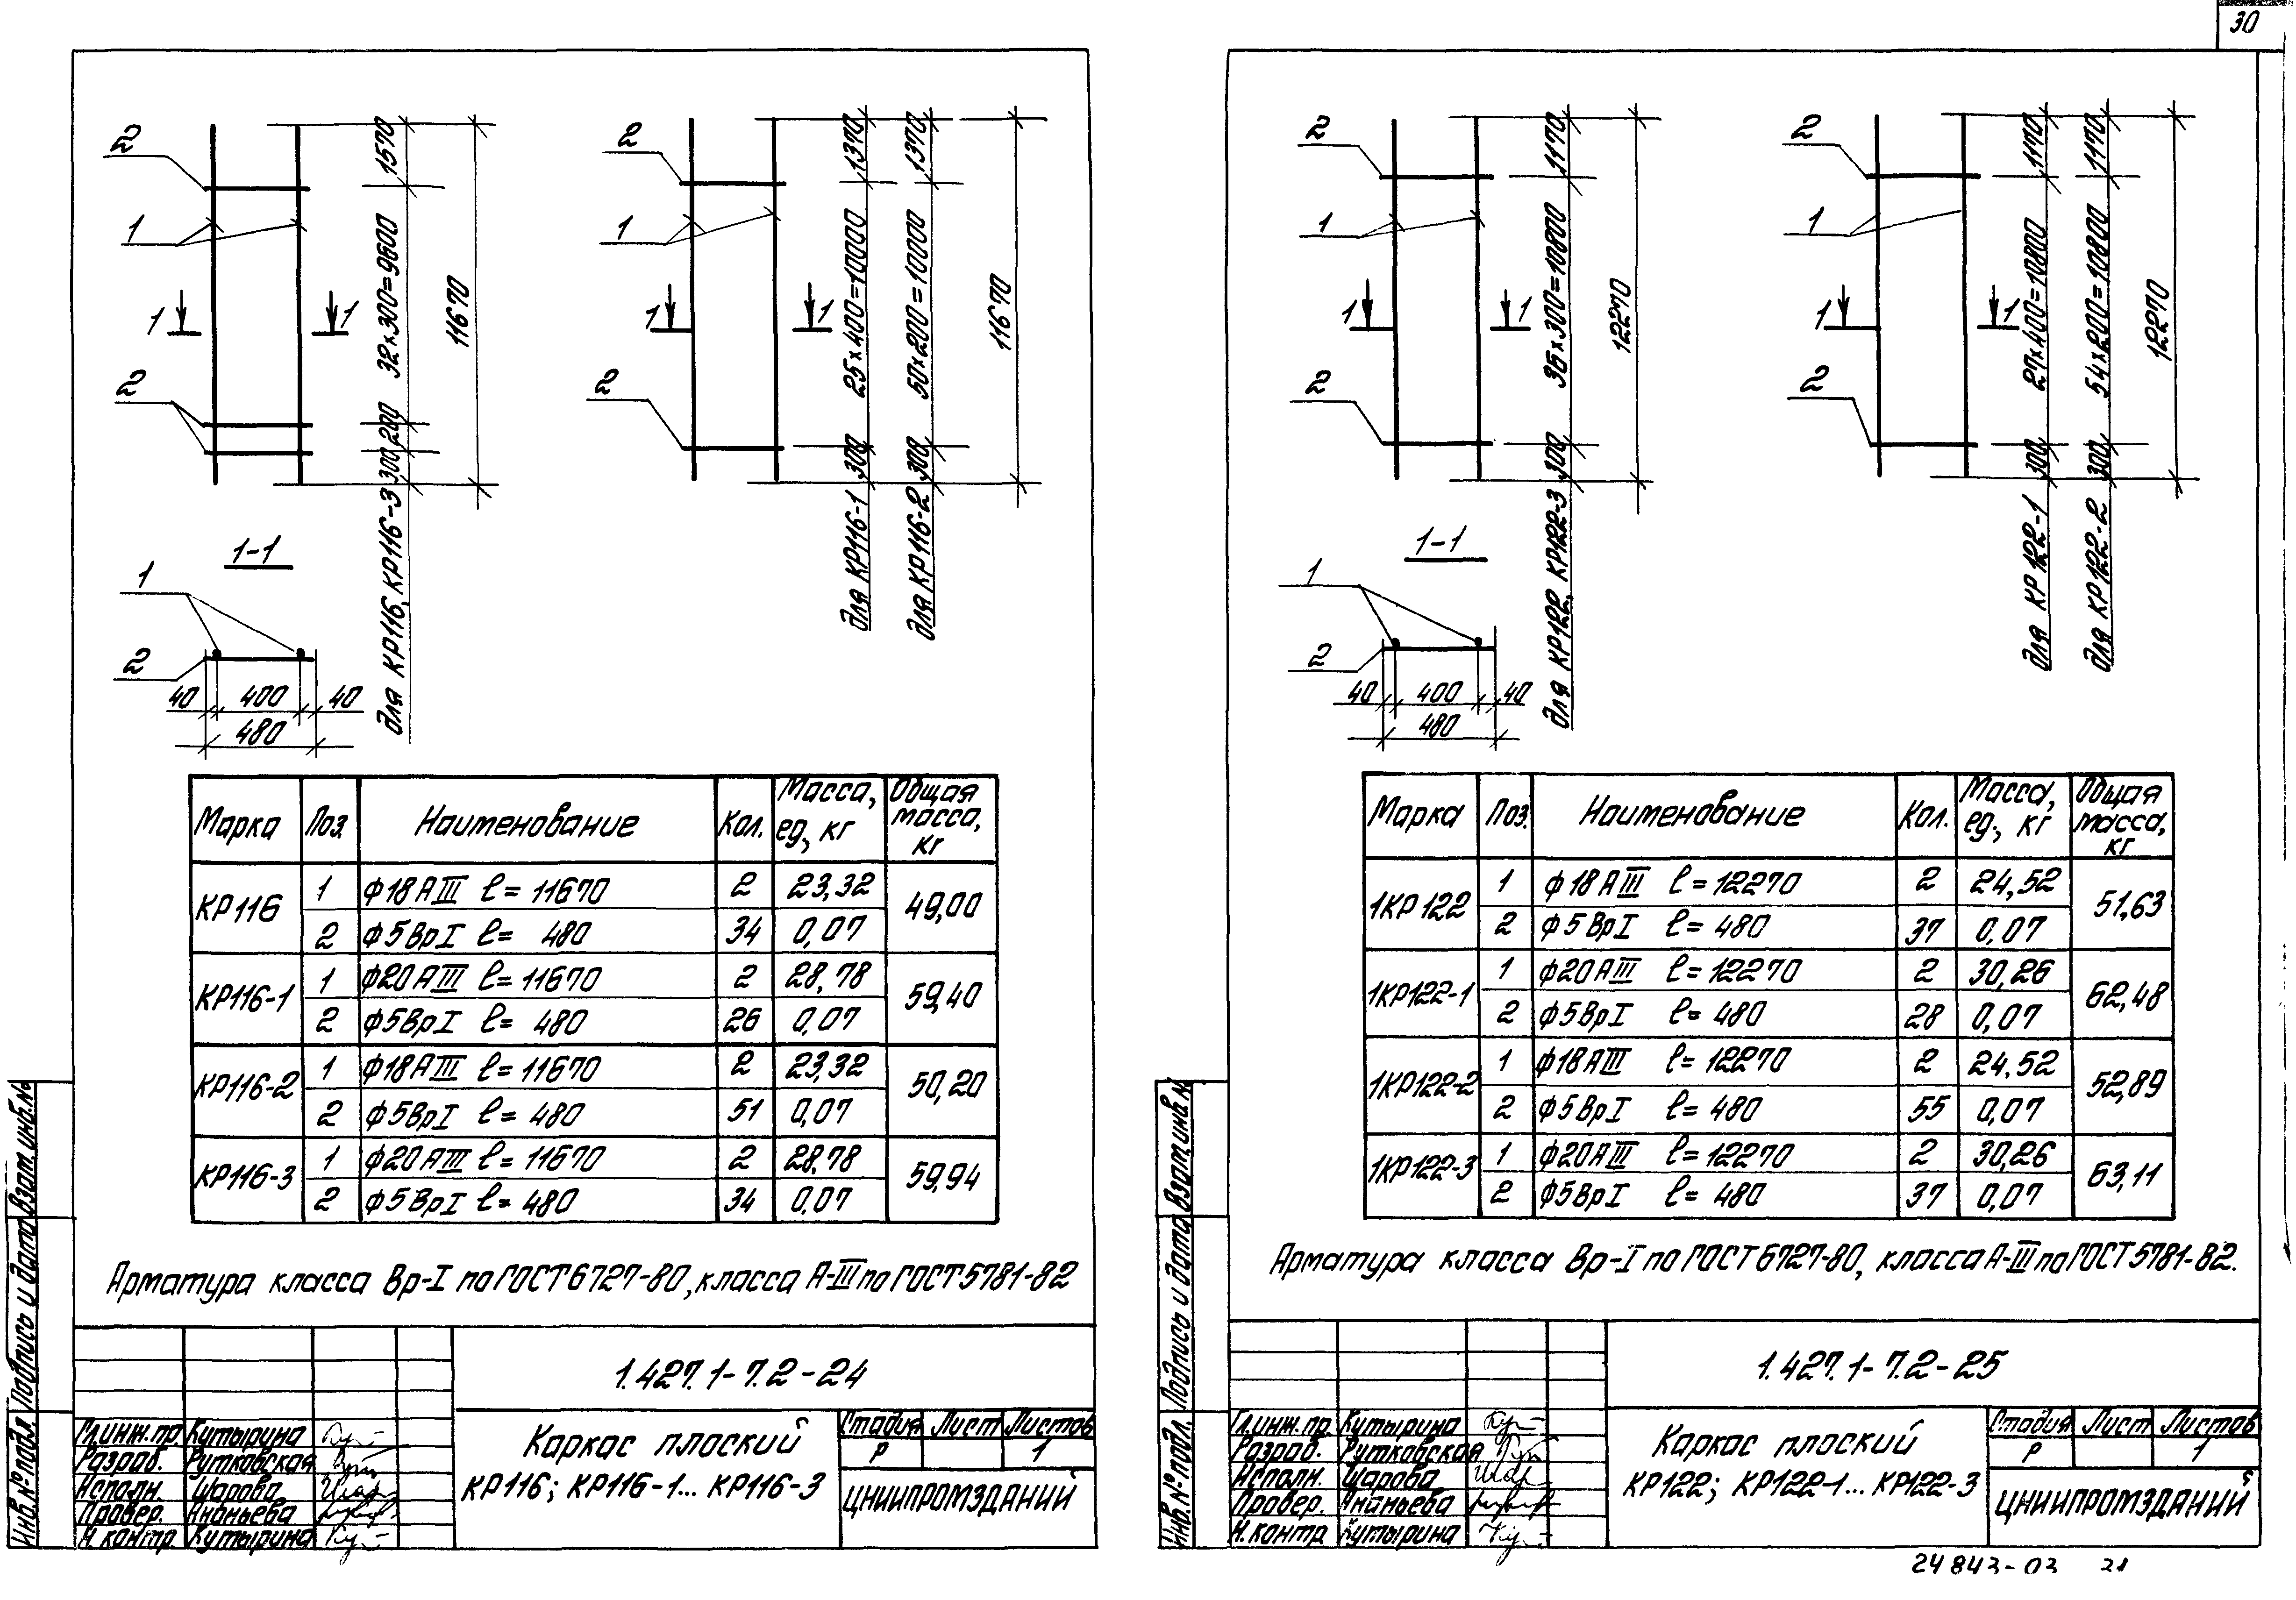 30
2
1
1 1
2
1570
32×300=9600
200
300
11670
для КР116, КР116-3
2
1
1 1
2
1370
25×400=10000
300
для КР116-1
1370
50×200=10000
300
для КР116-2
11670
1-1
1
2
40 400 40
480
Марка Поз. Наименование Кол. Масса, ед., кг Общая масса, кг
КР116 1 ф18АIII ℓ=11670 2 23,32 49,00
2 ф5ВрI ℓ= 480 34 0,07
КР116-1 1 ф20АIII ℓ=11670 2 28,78 59,40
2 ф5ВрI ℓ= 480 26 0,07
КР116-2 1 ф18АIII ℓ=11670 2 23,32 50,20
2 ф5ВрI ℓ= 480 51 0,07
КР116-3 1 ф20АIII ℓ=11670 2 28,78 59,94
2 ф5ВрI ℓ= 480 34 0,07
Арматура класса Вр-I по ГОСТ 6727-80, класса А-III по ГОСТ 5781-82
1.427.1-7.2-24
Гл.инж.пр. Кутырина
Разраб. Рутковская
Исполн. Шарова
Провер. Ананьева
Н.контр. Кутырина
Каркас плоский
КР116; КР116-1... КР116-3
Стадия Лист Листов
Р 1
ЦНИИПРОМЗДАНИЙ
Инв.№ подл. Подпись и дата Взам.инв.№
2
1
1 1
2
1170
36×300=10800
300
для КР122, КР122-3
12270
2
1
1 1
2
1170
27×400=10800
300
для КР122-1
1170
54×200=10800
300
для КР122-2
12270
1-1
1
2
40 400 40
480
Марка Поз. Наименование Кол. Масса, ед., кг Общая масса, кг
1КР122 1 ф18АIII ℓ=12270 2 24,52 51,63
2 ф5ВрI ℓ= 480 37 0,07
1КР122-1 1 ф20АIII ℓ=12270 2 30,26 62,48
2 ф5ВрI ℓ= 480 28 0,07
1КР122-2 1 ф18АIII ℓ=12270 2 24,52 52,89
2 ф5ВрI ℓ= 480 55 0,07
1КР122-3 1 ф20АIII ℓ=12270 2 30,26 63,11
2 ф5ВрI ℓ= 480 37 0,07
Арматура класса Вр-I по ГОСТ 6727-80, класса А-III по ГОСТ 5781-82.
1.427.1-7.2-25
Гл.инж.пр. Кутырина
Разраб. Рутковская
Исполн. Шарова
Провер. Ананьева
Н.контр. Кутырина
Каркас плоский
КР122; КР122-1... КР122-3
Стадия Лист Листов
Р 1
ЦНИИПРОМЗДАНИЙ
Инв.№ подл. Подпись и дата Взам.инв.№
24843-03 31